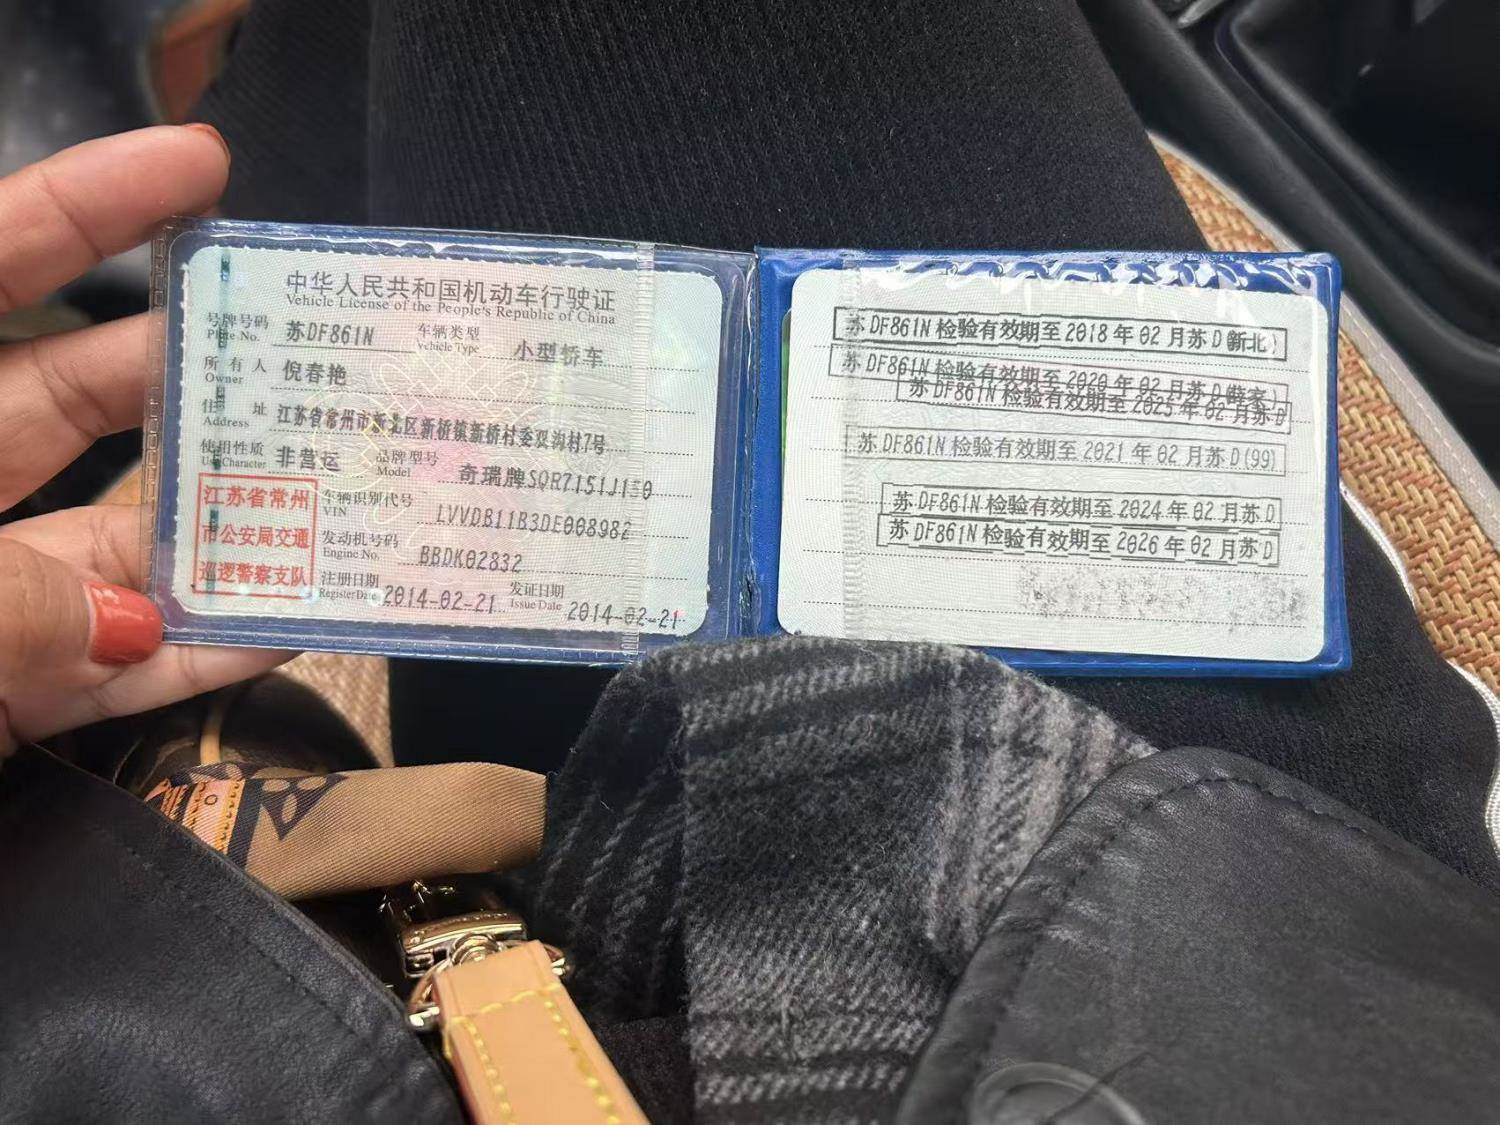 中华人民共和国机动车行驶证
Vehicle License of the People's Republic of China
号牌号码 苏DF861N 车辆类型 小型轿车
Plate No. Vehicle Type
所有人 倪春艳
Owner
住址 江苏省常州市新北区新桥镇新桥村委双沟村7号
Address
使用性质 非营运 品牌型号 奇瑞牌SQR7151J150
Use Character Model
车辆识别代号 LVVDB11B3DE008982
VIN
发动机号码 BBDK02832
Engine No.
注册日期 2014-02-21 发证日期 2014-02-21
Register Date Issue Date
江苏省常州
市公安局交通
巡逻警察支队
苏DF861N 检验有效期至2018年02月苏D(新北)
苏DF861N 检验有效期至2020年02月苏D(薛家)
苏DF861N 检验有效期至2025年02月苏D
苏DF861N 检验有效期至2021年02月苏D(99)
苏DF861N 检验有效期至2024年02月苏D
苏DF861N 检验有效期至2026年02月苏D